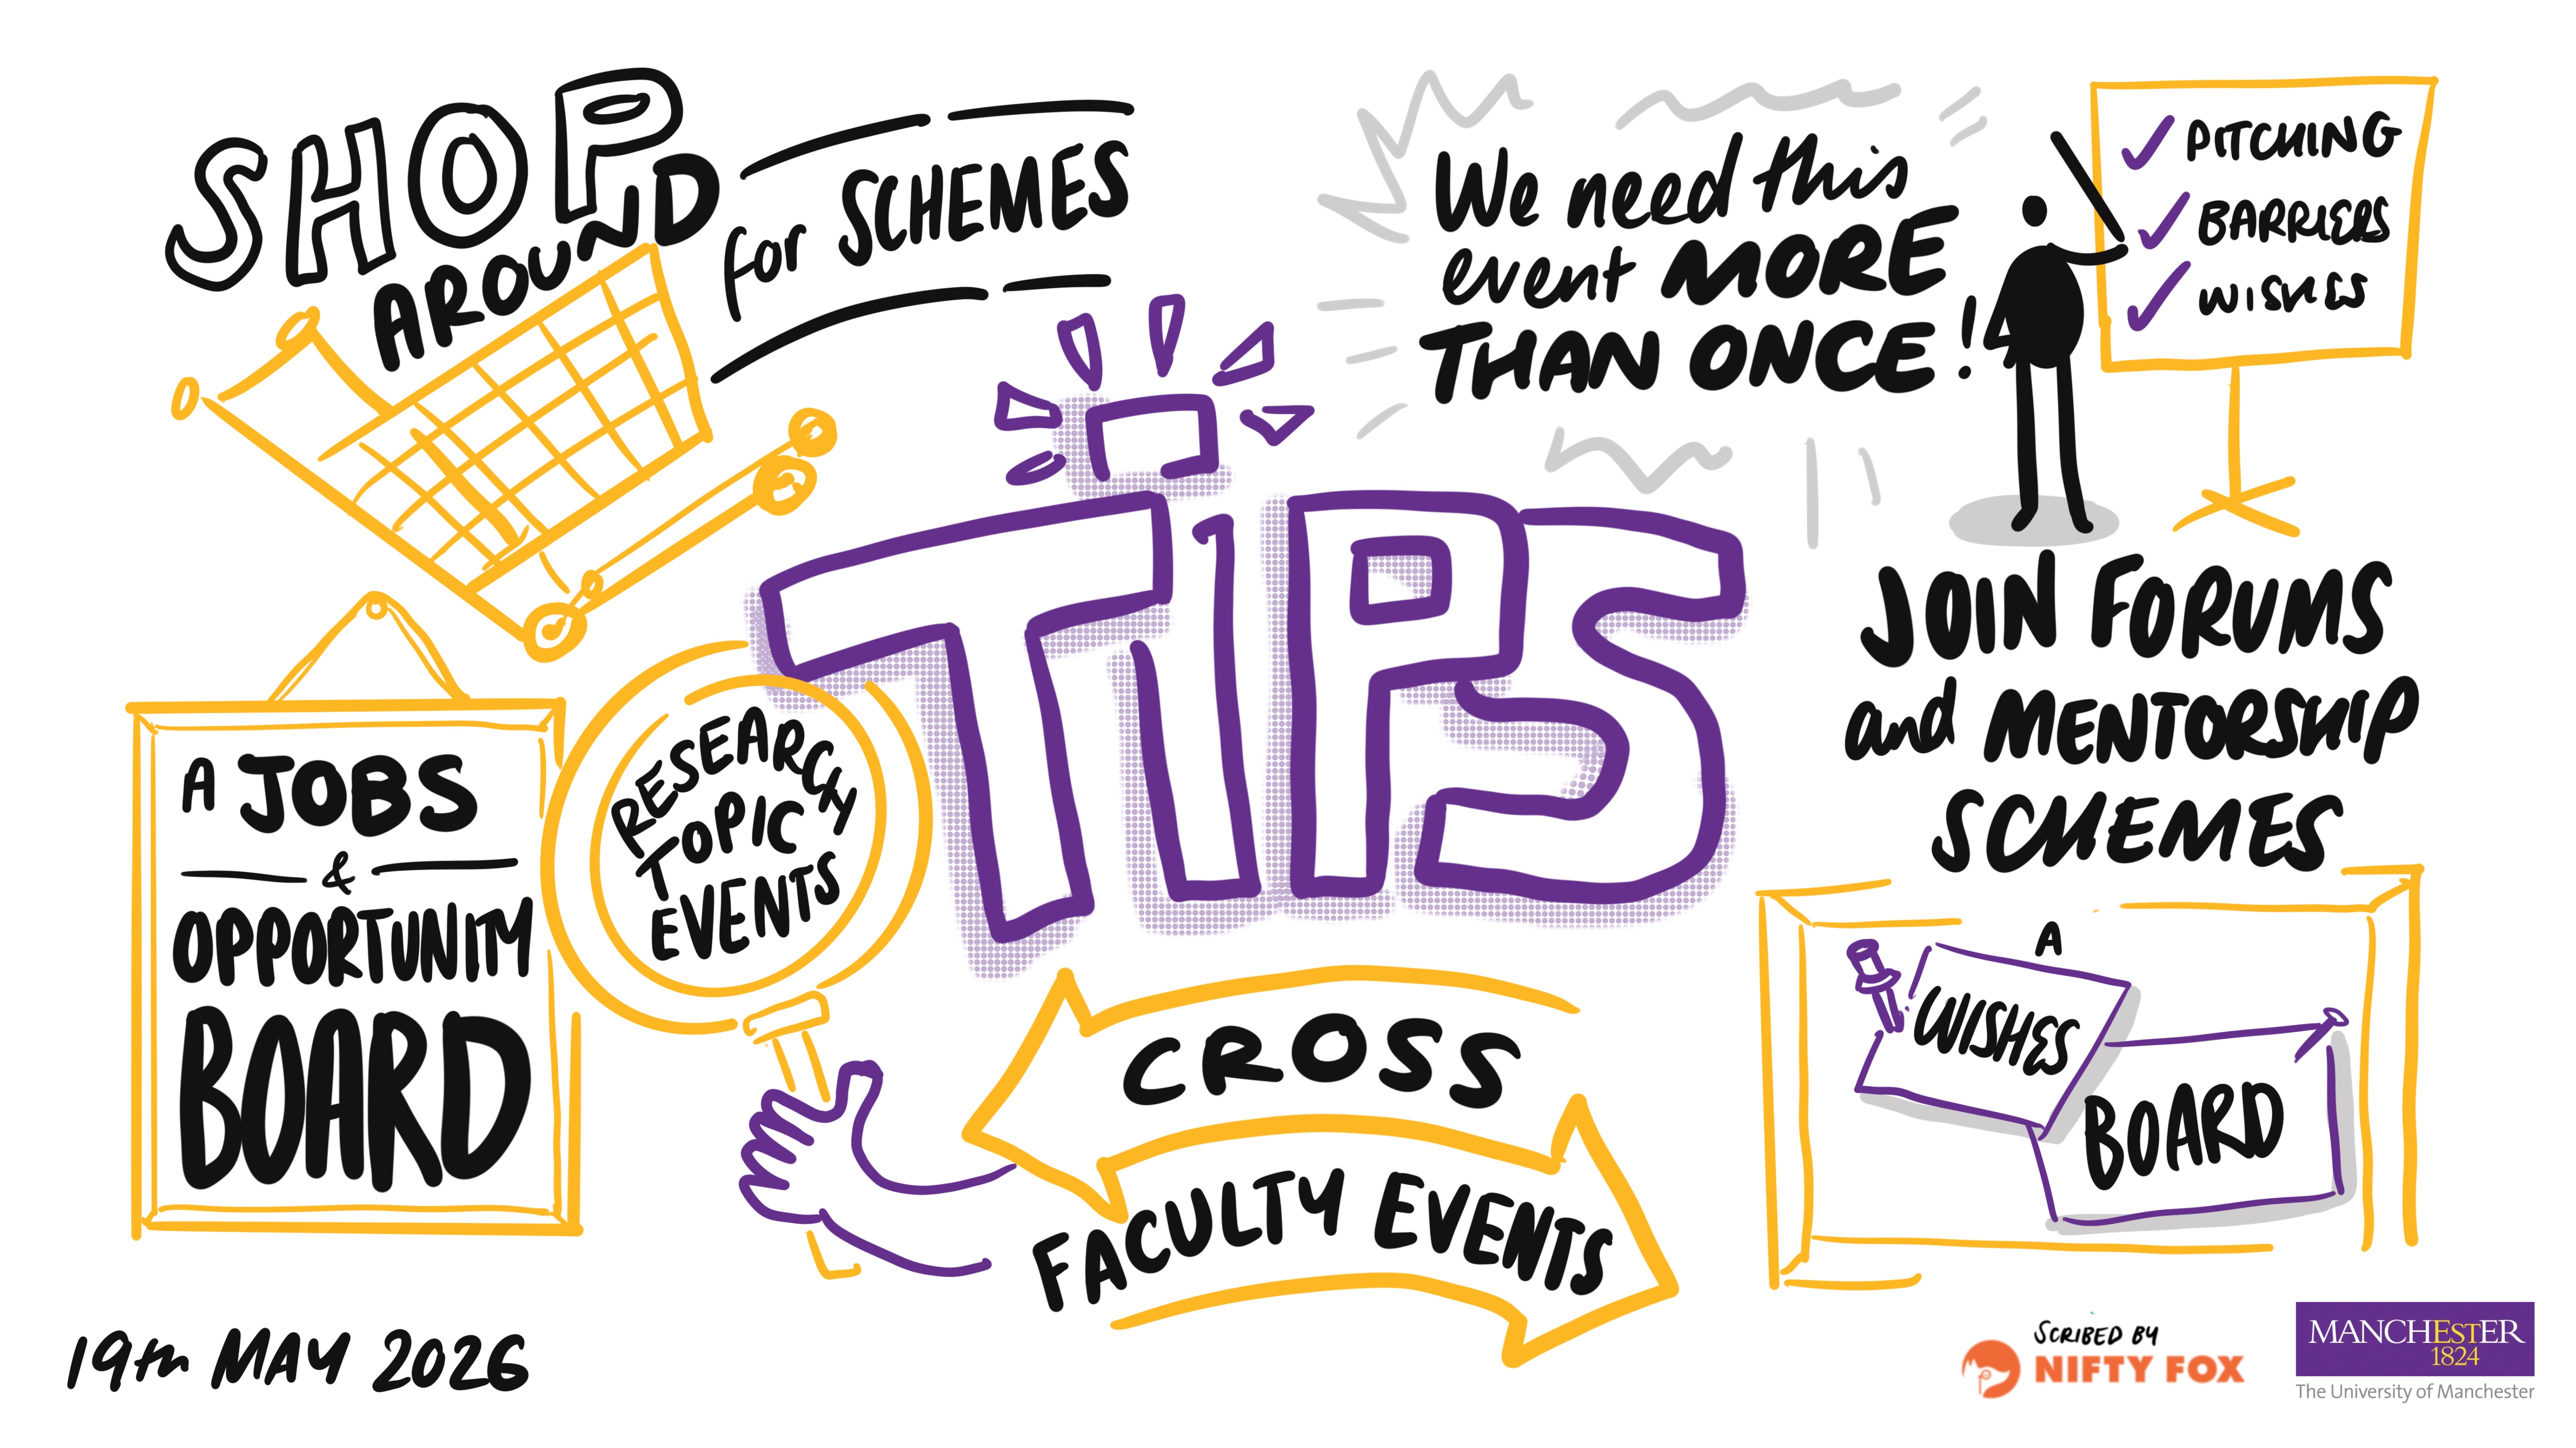 SHOP
AROUND
for SCHEMES
We need this
event MORE
THAN ONCE!
PITCHING
BARRIERS
WISHES
TIPS
JOIN FORUMS
and MENTORSHIP
SCHEMES
A JOBS
&
OPPORTUNITY
BOARD
RESEARCH
TOPIC
EVENTS
CROSS
FACULTY EVENTS
A
WISHES
BOARD
19th MAY 2026
SCRIBED BY
NIFTY FOX
MANCHESTER
1824
The University of Manchester